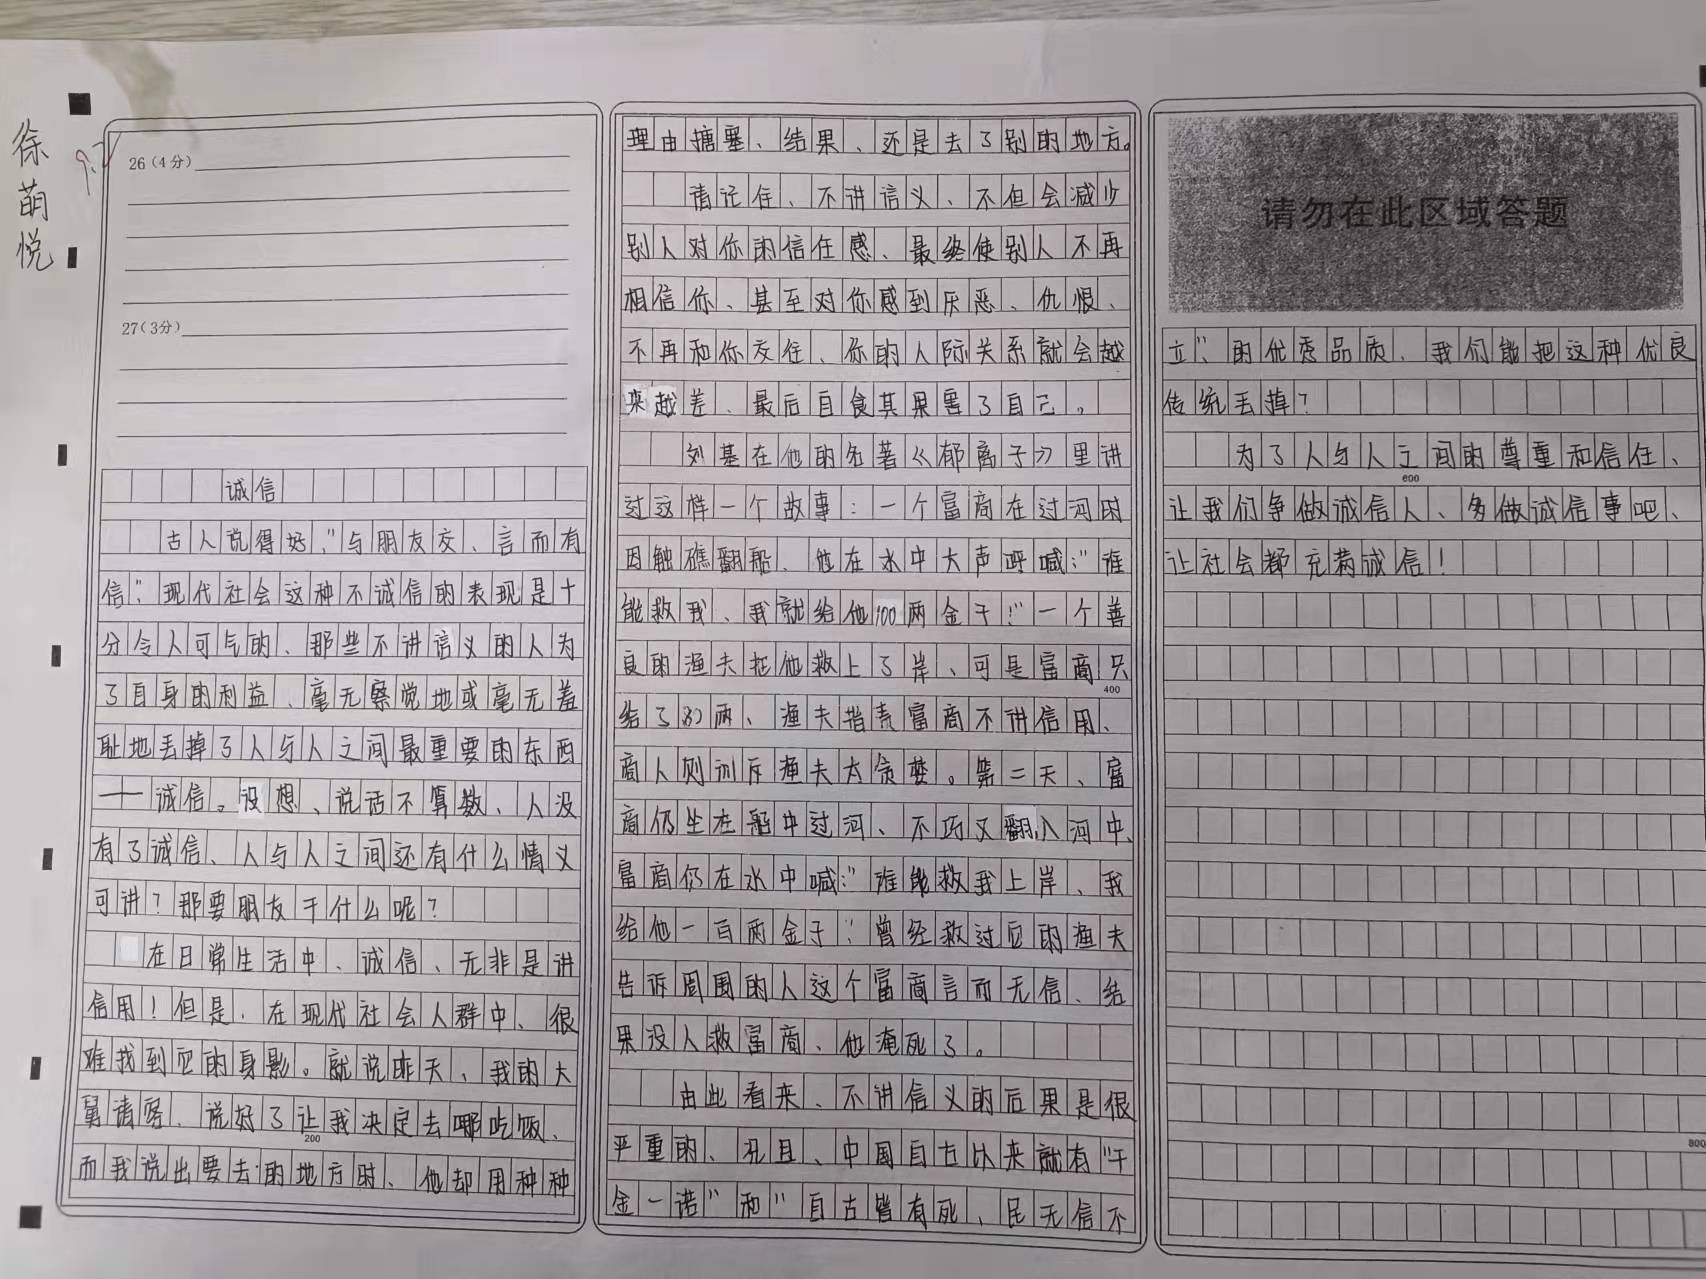 徐萌悦
26(4分)
27(3分)
诚信
古人说得好,"与朋友交、言而有
信"。现代社会这种不诚信的表现是十
分令人可气的、那些不讲信义的人为
了自身的利益、毫无察觉地或毫无羞
耻地丢掉了人与人之间最重要的东西
——诚信。没想、说话不算数、人没
有了诚信、人与人之间还有什么情义
可讲?那要朋友干什么呢?
在日常生活中、诚信、无非是讲
信用!但是,在现代社会人群中、很
难找到它的身影。就说昨天、我的大
舅请客、说好了让我决定去哪吃饭、
200
而我说出要去的地方时、他却用种种
理由搪塞、结果、还是去了别的地方。
请记住、不讲信义、不但会减少
别人对你的信任感、最终使别人不再
相信你、甚至对你感到厌恶、仇恨、
不再和你交往、你的人际关系就会越
来越差、最后自食其果害了自己。
刘基在他的名著《郁离子》里讲
过这样一个故事:一个富商在过河时
因触礁翻船、他在水中大声呼喊:"谁
能救我、我就给他100两金子!"一个善
良的渔夫把他救上了岸、可是富商只
400
给了80两、渔夫指责富商不讲信用、
商人则训斥渔夫太贪婪。第二天、富
商仍坐在船中过河、不巧又翻入河中、
富商仍在水中喊:"谁能救我上岸、我
给他一百两金子"。曾经救过它的渔夫
告诉周围的人这个富商言而无信、结
果没人救富商、他淹死了。
由此看来、不讲信义的后果是很
严重的、况且、中国自古以来就有"千
金一诺"和"自古皆有死、民无信不
请勿在此区域答题
立"、的优秀品质、我们能把这种优良
传统丢掉?
为了人与人之间的尊重和信任、
600
让我们争做诚信人、多做诚信事吧、
让社会都充满诚信!
800